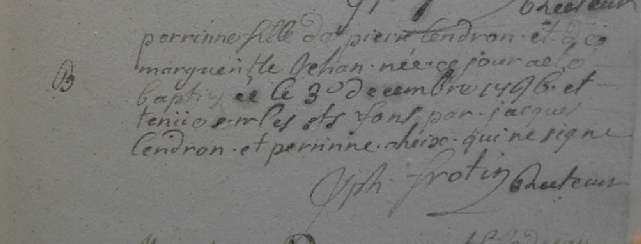 Recteur
perrinne fille de pierre Lendron et de
margueritte née ce jour a eté
B
baptisee le 3e decembre 1796 et
tenüe sur les sts fons par jacques
Lendron et perrinne cheixe qui ne signe
Jph frotin Recteur